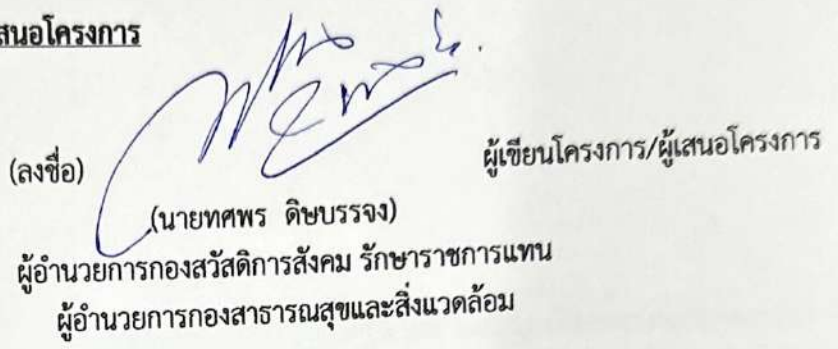 สนอโครงการ
(ลงชื่อ) ผู้เขียนโครงการ/ผู้เสนอโครงการ
(นายทศพร ดิษบรรจง)
ผู้อำนวยการกองสวัสดิการสังคม รักษาราชการแทน
ผู้อำนวยการกองสาธารณสุขและสิ่งแวดล้อม